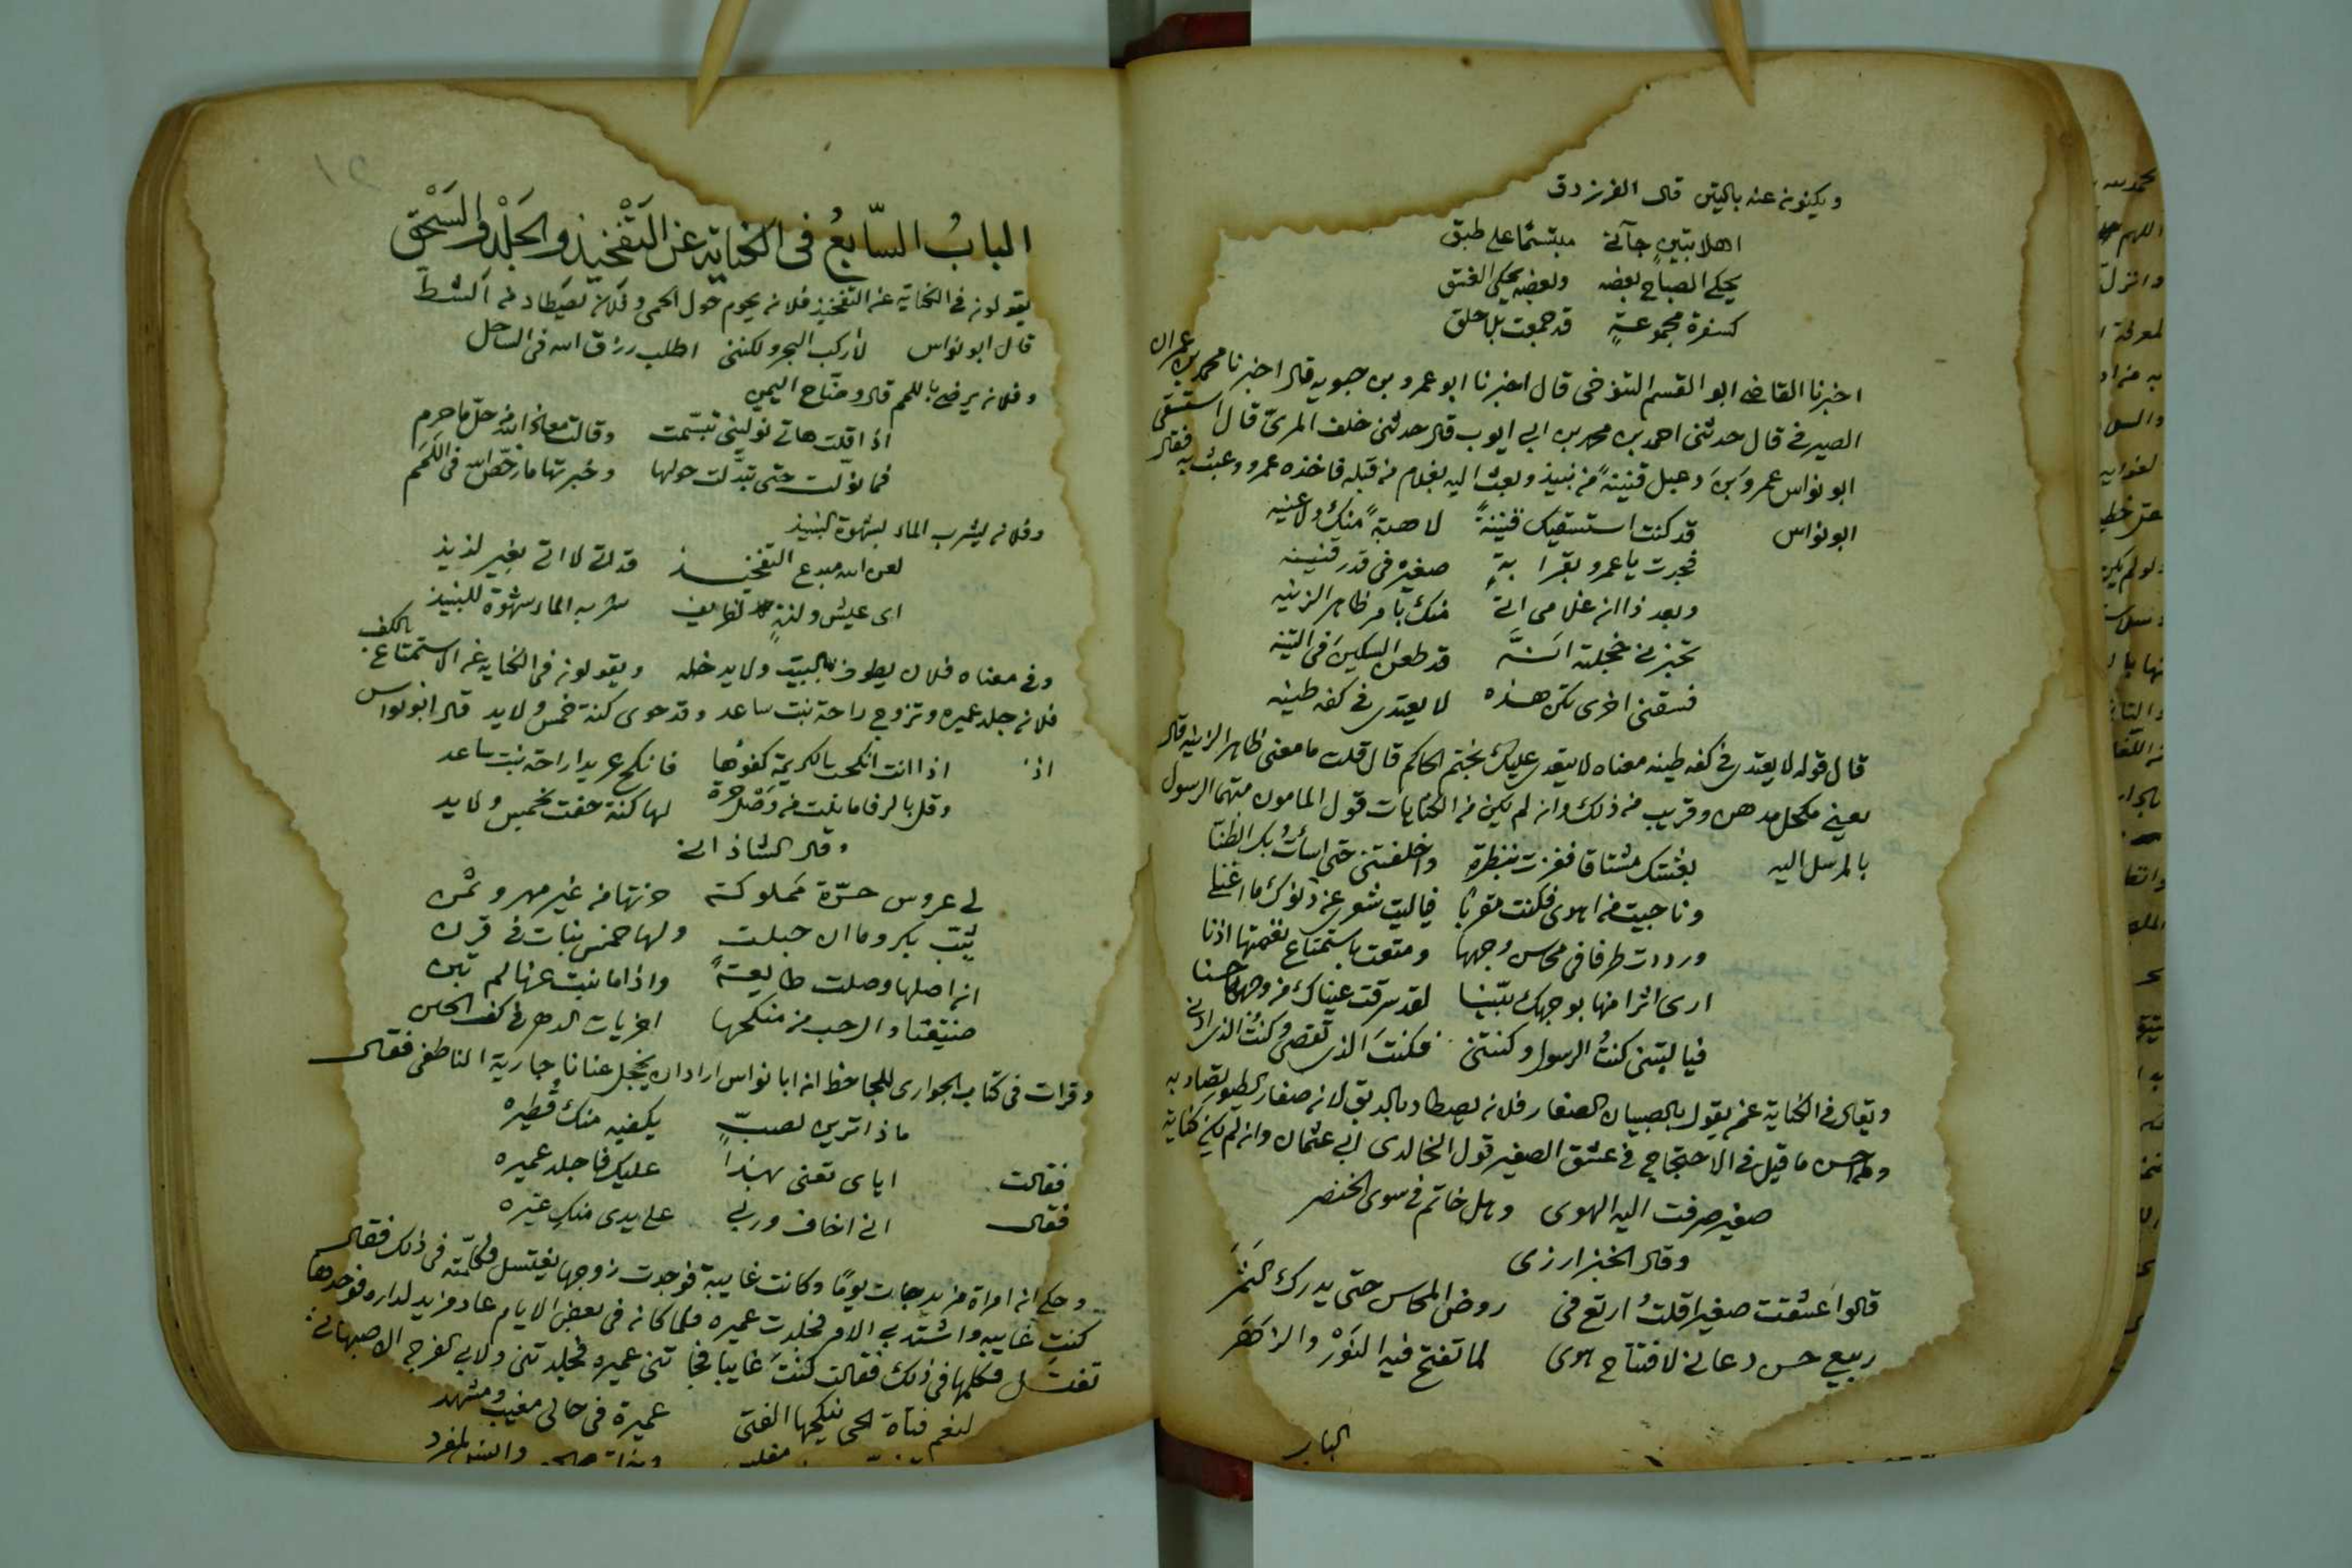 ويكنون عنه بالتين قال الفرزدق
اهلا بتين جآنى مبتسما على طبق
يحكي الصباح بعضه وبعضه يحكي الغسق
كسفرة مجموعةٍ قد جمعت بلا حلق
اخبرنا القاضى ابو القسم التنوخى قال اخبرنا ابو عمرو بن حيويه قال اخبرنا محمد بن عمران
الصيرفى قال حدثنى احمد بن محمد بن ابى ايوب قال حدثنى خلف المرىّ قال استسقى
ابو نواس عمرو بن دعبل قنينةً من نبيذ وبعث اليه بغلام من قبله فاخذه عمرو وعبث به فقال
ابو نواس قد كنت استسقيك قنينةً لا هبةً منك ولا عنيه
فجرت يا عمرو بقرابةٍ صغيره فى قدر قنينه
وبعد ذا ان غلامى اتى منك بامر ظاهر الزينه
تخبرنى خجلته انّه قد طعن السكين فى التينه
فسقنى اخرى تكن هذه لا يعتدى فى كفه طينه
قال قوله لا يعتدى فى كفه طينه معناه لا يتعدى عليك بختم الحاكم قال قلت ما معنى ظاهر الزينه قال
يعنى مكحل مدهن وقريب من ذلك وان لم يكن من الكنايات قول المامون متهما الرسول
بالمرسل اليه بعثتك مشتاقا ففزت بنظرة واخلفتنى حتى اسأتُ بك الظنّا
وناجيت من اهوى فكنت مقربا فياليت شعرى عن دنوك ما اغنى
ورددت طرفا فى محاسن وجهها ومتعت باستمتاع نغمتها اذنا
ارى اثرا منها بوجهك بيّنا لقد سرقت عيناك من وجهها حسنا
فياليتنى كنتُ الرسول وكنتنى فكنتَ الذى تقصى وكنتُ الذى ادنى
ويقال فى الكناية عمن يقول بالصبيان الصغار فلان يصطاد بالدبق لان صغار الطيور تصاد به
ومن احسن ما قيل فى الاحتجاج فى عشق الصغير قول الخالدى ابى عثمان وان لم يكن كناية
صغير صرفت اليه الهوى وهل خاتم فى سوى الخنصر
وقال الخبزارزى
قالوا عشقت صغيرا قلتُ ارتع فى روض المحاسن حتى يدرك الثمَر
ربيع حسن دعانى لافتتاح هوى لما تفتح فيه النَوْر والزَهَر
الباب
البابُ السّابعُ فى الكناية عن التفْخيذ والجَلْد والسَحْق
يقولون فى الكناية عن التفخيذ فلان يحوم حول الحمى وفلان يصطاد من الشط
قال ابو نواس لا اركب البحر ولكننى اطلب رزق الله فى الساحل
وفلان يرضى باللمم قال وضّاح اليمن
اذا قلت هاتى نوّلينى تبسّمت وقالت معاذ الله من حلّ ما حرم
فما نوّلت حتى تبدّلت حولها وخبرتها ما رخّص الله فى اللمَم
وفلان يشرب الماء بشهوة النبيذ
لعن الله مبدع التفخيذ قد اتى لا اتى بغير لذيذ
اى عيش ولذةٍ لظريف شربه الماء شهوة للنبيذ
وفى معناه فلان يطوف بالبيت ولا يدخله ويقولون فى الكناية عن الاستمتاع بالكف
فلان جلد عميره وتزوج راحة بنت ساعد وقد حوى كنة خمس ولايد قال ابو نواس
اذا اذا انت انكحت الكريمة كفوَها فانكح عريدا راحة بنت ساعد
وقل بالرفا ما نلت من وصل حرة لها كنة حفت بخمس ولايد
وقال الشاذانى
لى عروس حرّة مملوكة حزتها من غير مهر وثمن
ثيّب بكر وما ان حبلت ولها خمس بنات فى قرن
ان اصلها وصلت طايعةً واذا ما نبت عنها لم تبن
ضيّقتاد الرحب من منكحها اخريات الدهر فى كف الحسن
وقرات فى كتاب الجوارى للجاحظ ان ابا نواس اراد ان يخجل عنانا جارية الناطفى فقال
ماذا ترين لصبٍّ يكفيه منك قُطيره
فقالت اياى تعنى بهذا عليك فاجلد عميره
فقال انى اخاف وربى على يدى منكِ غيره
وحكى ان امراة مزيد جات يومًا وكانت غايبة فوجدت زوجها يغتسل فكلّمته فى ذلك فقال
كنتِ غايبه واشتد بى الامر فجلدت عميره فلما كان فى بعض الايام عاد مزيد لداره فوجدها
تغتسل فكلمها فى ذلك فقالت كنتَ غايبا فجاتنى عميره فجلدتنى ولابى الفرج الاصبهانى:
لنعم فتاة الحى ننكحها الفتى عميرة فى حالى مغيب ومشهد